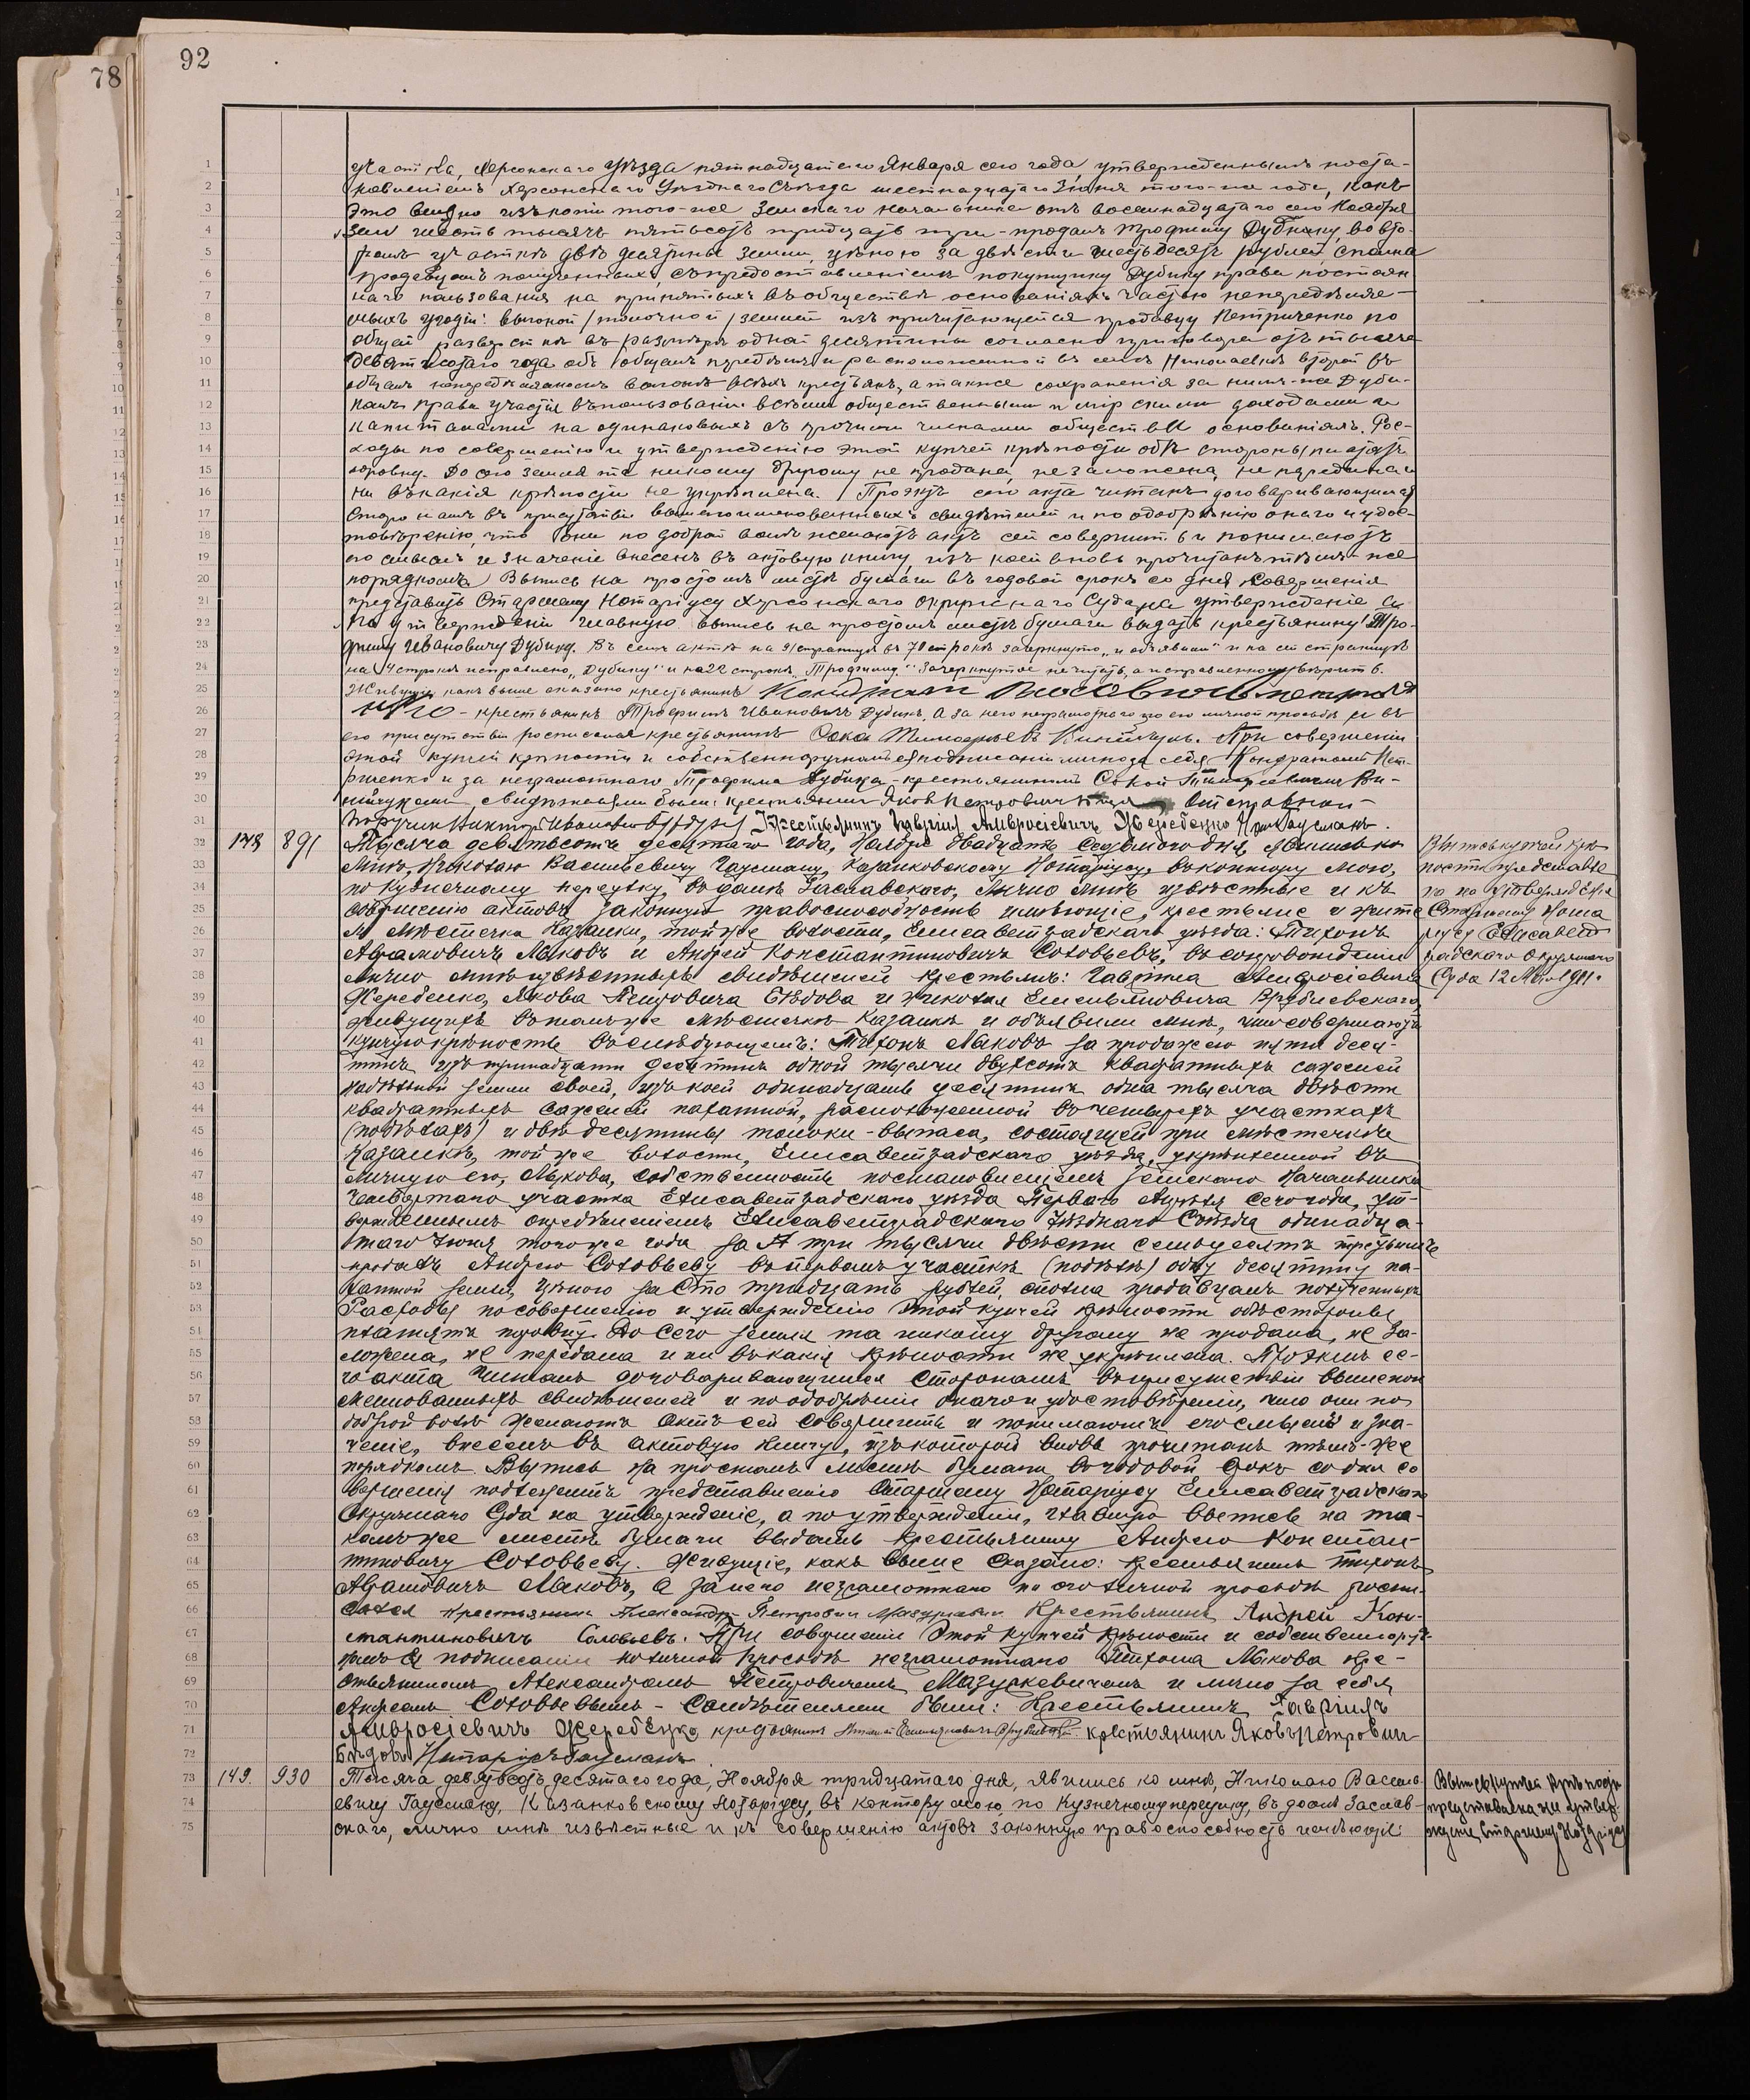 78
92
участка, Херсонскаго Уѣзда пятнадцатаго Января сего года, утвержденнымъ поста-
новленіемъ Херсонскаго Уѣзднаго Съѣзда шестнадцатаго Іюня того-же года, какъ
это видно изъ копіи того-же Земскаго Начальника отъ восемнадцатаго сего Ноября
за шесть тысячъ пятьсотъ тридцать три - продалъ Трофиму Дубину, во вто-
ромъ участкѣ двѣ десятины земли, цѣною за двѣсти шестьдесятъ рублей, сполна
продавцомъ полученныхъ, съ предоставленіемъ покупщику Дубину права постоян
наго пользованія на принятыхъ въ обществѣ основаніяхъ частью непередѣляе-
мыхъ угодій: выгонной /толочной/ землей изъ причитающейся продавцу Петриченко по
общей разверсткѣ въ размѣрѣ одной десятины согласно приговора отъ тысяча
девятисотаго года объ общемъ передѣлѣ и расположенной въ селѣ Николаевкѣ второй въ
общемъ непередѣляемомъ выгонѣ всѣхъ крестьянъ, а также сохраненія за нимъ-же Дуби-
нымъ права участія въ пользованіи всѣми общественными и мірскими доходами и
капиталами на одинаковыхъ съ прочими членами общества основаніяхъ. Рас-
ходы по совершенію и утвержденію этой купчей крѣпости обѣ стороны платятъ
поровну. До сего земля та никому другому не продана, не заложена, не передана и
ни въ какія крѣпости не укрѣплена. Проэктъ сего акта читанъ договаривающимся
сторонамъ въ присутствіи вышепоименованныхъ свидѣтелей и по одобренію онаго и удос-
товѣренію, что они по доброй волѣ желаютъ актъ сей совершить и понимаютъ
его смыслъ и значеніе внесенъ въ актовую книгу, изъ коей вновь прочитанъ тѣмъ-же
порядкомъ. Выпись на простомъ листѣ бумаги въ годовой срокъ со дня совершенія
представить Старшему Нотаріусу Херсонскаго Окружнаго Суда на утвержденіе, а
по утвержденіи главную выпись на простомъ листѣ бумаги выдать крестьянину Тро-
фиму Ивановичу Дубину. Въ семъ актѣ на 91 страницѣ въ 70 строкѣ зачеркнуто „и объявили" и на сей страницѣ
на 4 строкѣ исправлено „Дубину" и на 22 строкѣ „Трофиму." Зачеркнутое не читать, а исправленному вѣрить.
Живущіе, какъ выше сказано крестьянинъ Кондратъ
- крестьянинъ Трофимъ Ивановичъ Дубинъ, а за него неграмотнаго по его личной просьбѣ и въ
его присутствіи росписался крестьянинъ При совершеніи
этой купчей крѣпости и собственноручномъ ея подписаніи лично за себя Кондратомъ Пет-
риченко и за неграмотнаго Трофима Дубина - крестьяниномъ
свидѣтелями были: крестьянинъ Яковъ Петровичъ Отставной
Крестьянинъ Гавріилъ Амвросіевичъ Жеребецко Нот. Гаусманъ.
148 891 Тысяча девятьсотъ десятаго года, Ноября двадцать седьмого дня, явились ко
мнѣ, Николаю Васильевичу Гаусману, Казанковскому Нотаріусу, въ контору мою,
по Кузнечному переулку, въ домѣ Заславскаго, лично мнѣ извѣстные и къ
совершенію актовъ законную правоспособность имѣющіе, крестьяне и жите
ли мѣстечка Казанки, той же волости, Елисаветградскаго уѣзда: Тихонъ
Абрамовичъ Маковъ и Андрей Константиновичъ Соловьевъ, въ сопровожденіи
лично мнѣ извѣстныхъ свидѣтелей крестьянъ: Гавріила Амвросіевича
Жеребецко, Якова Петровича Бѣдова и Николая Емельяновича Врублевскаго,
живущихъ въ томъ же мѣстечкѣ Казанкѣ и объявили мнѣ, что совершаютъ
купчую крѣпость въ слѣдующемъ: Тихонъ Маковъ за продажею пяти деся-
тинъ изъ тринадцати десятинъ одной тысячи двухсотъ квадратныхъ саженей
надѣльной земли своей, изъ коей одинадцать десятинъ одна тысяча двѣсти
квадратныхъ саженей пахатной, расположенной въ четырехъ участкахъ
(поляхъ) и двѣ десятины толоки-выпаса, состоящей при мѣстечкѣ
Казанкѣ, той же волости, Елисаветградскаго уѣзда, укрѣпленной въ
личную его, Макова, собственность постановленіемъ Земскаго Начальника
четвертаго участка Елисаветградскаго уѣзда Перваго Апрѣля сего года, ут-
вержденнымъ опредѣленіемъ Елисаветградскаго Уѣзднаго Съѣзда одинадца-
таго Іюня того же года за № три тысячи двѣсти семьдесятъ третьимъ
продалъ Андрею Соловьеву въ первомъ участкѣ (полѣ) одну десятину па-
хатной земли, цѣною за сто тридцать рублей, сполна продавцомъ полученныхъ
Расходы по совершенію и утвержденію этой купчей крѣпости обѣ стороны
платятъ поровну. До сего земля та никому другому не продана, не за-
ложена, не передана и ни въ какія крѣпости не укрѣплена. Проэктъ се-
го акта читанъ договаривающимся сторонамъ въ присутствіи вышепои
менованныхъ свидѣтелей и по одобреніи онаго и удостовѣреніи, что они по
доброй волѣ желаютъ актъ сей совершить и понимаютъ его смыслъ и зна-
ченіе, внесенъ въ актовую книгу, изъ которой вновь прочитанъ тѣмъ-же
порядкомъ. Выпись на простомъ листѣ бумаги въ годовой срокъ со дня со
вершенія подлежитъ представленію Старшему Нотаріусу Елисаветградскаго
Окружнаго Суда на утвержденіе, а по утвержденіи, главную выпись на та-
комъ же листѣ бумаги выдать крестьянину Андрею Констан-
тиновичу Соловьеву. Живущіе, какъ выше сказано: крестьянинъ Тихонъ
Абрамовичъ Маковъ, а за него неграмотнаго по его личной просьбѣ роспи-
сался крестьянинъ Александръ Петровичъ Мазуркевичъ Крестьянинъ Андрей Кон-
стантиновичъ Соловьевъ. При совершеніи этой купчей крѣпости и собственноруч-
номъ ея подписаніи по личной просьбѣ неграмотнаго Тихона Макова кре-
стьяниномъ Александромъ Петровичемъ Мазуркевичемъ и лично за себя
Андреемъ Соловьевымъ - свидѣтелями были: Крестьянинъ Гавріилъ
Амвросіевичъ Жеребецко крестьянинъ Николай Емельяновичъ Врублевскій крестьянинъ Яковъ Петрович
Бѣдовъ Нотаріусъ Гаусманъ
149. 930 Тысяча девятьсотъ десятаго года, Ноября тридцатаго дня, явились ко мнѣ, Николаю Василь-
евичу Гаусману, Казанковскому Нотаріусу, въ контору мою, по Кузнечному переулку, въ домѣ Заслав-
скаго, лично мнѣ извѣстные и къ совершенію актовъ законную правоспособность имѣющіе:
Выпись купчей крѣ
пости представле
на на утвержденіе
Старшему Нота
ріусу Елисавет
градскаго Окружнаго
Суда 12 1911.
Выпись купчей крѣпости
представлена на утвер-
жденіе Старшему Нотаріусу